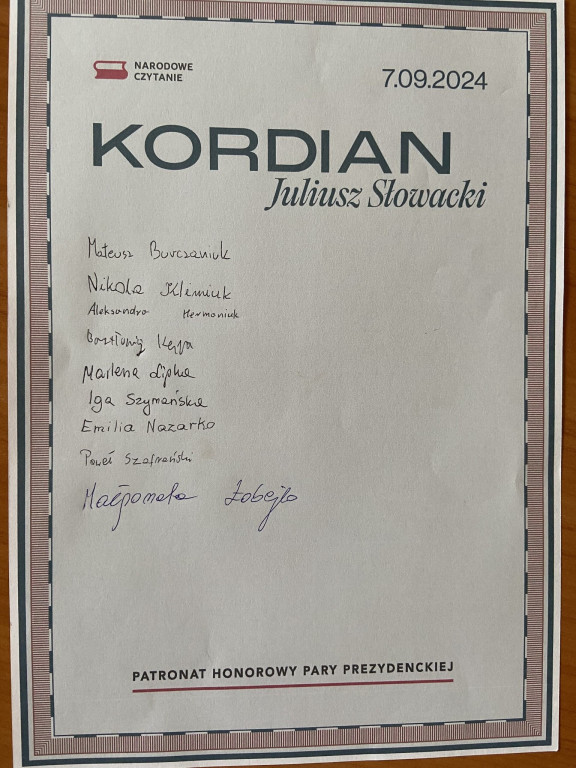 NARODOWE
CZYTANIE
7.09.2024
KORDIAN
Juliusz Słowacki
Mateusz Burczaniuk
Nikola Klimiuk
Aleksandra Hermaniuk
Kępa
Marlena Lipka
Iga Szymańska
Emilia Nazarko
Paweł Szafrański
Małgorzata Łobejko
PATRONAT HONOROWY PARY PREZYDENCKIEJ